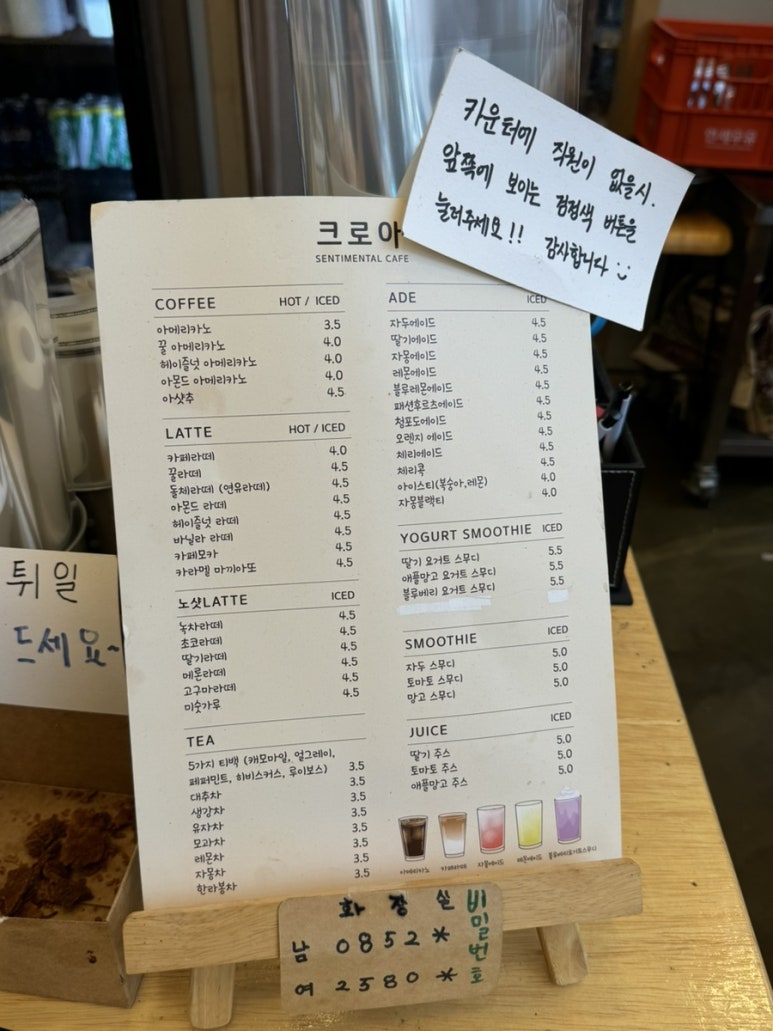 카운터에 직원이 없을시.
앞쪽에 보이는 검정색 버튼을
눌러주세요!! 감사합니다
크로아
SENTIMENTAL CAFE
COFFEE HOT / ICED
아메리카노 3.5
꿀 아메리카노 4.0
헤이즐넛 아메리카노 4.0
아몬드 아메리카노 4.0
아샷추 4.5
LATTE HOT / ICED
카페라떼 4.0
꿀라떼 4.5
돌체라떼 (연유라떼) 4.5
아몬드 라떼 4.5
헤이즐넛 라떼 4.5
바닐라 라떼 4.5
카페모카 4.5
카라멜 마끼아또 4.5
노샷LATTE ICED
녹차라떼 4.5
초코라떼 4.5
딸기라떼 4.5
메론라떼 4.5
고구마라떼 4.5
미숫가루 4.5
TEA
5가지 티백 (캐모마일, 얼그레이,
페퍼민트, 히비스커스, 루이보스) 3.5
대추차 3.5
생강차 3.5
유자차 3.5
모과차 3.5
레몬차 3.5
자몽차 3.5
한라봉차 3.5
ADE ICED
자두에이드 4.5
딸기에이드 4.5
자몽에이드 4.5
레몬에이드 4.5
블루레몬에이드 4.5
패션후르츠에이드 4.5
청포도에이드 4.5
오렌지 에이드 4.5
체리에이드 4.5
체리콕 4.5
아이스티(복숭아,레몬) 4.0
자몽블랙티 4.0
YOGURT SMOOTHIE ICED
딸기 요거트 스무디 5.5
애플망고 요거트 스무디 5.5
블루베리 요거트 스무디 5.5
SMOOTHIE ICED
자두 스무디 5.0
토마토 스무디 5.0
망고 스무디 5.0
JUICE ICED
딸기 주스 5.0
토마토 주스 5.0
애플망고 주스 5.0
아메리카노 카페라떼 자몽에이드 레몬에이드 블루베리요거트스무디
튀일
드세요~
화장실 비밀번호
남 0852*
여 2580*
연세우유